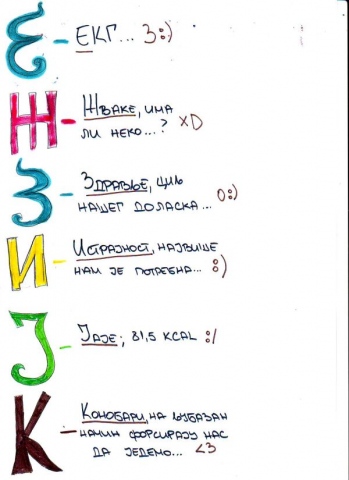 Е - ЕКГ... 3:)
Ж - Жваке, има
ли неко...? xD
З - Здравље, циљ
нашег доласка... 0:)
И - Истрајност, највише
нам је потребна... :)
Ј - Јаје; 81,5 kcal :/
К - Конобари, на љубазан
начин форсирају нас
да једемо... <3